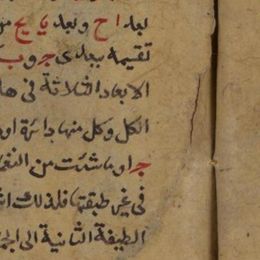 بعد ا ح وبعد يا يح
تقيمه ببعدى ج و ب
الابعاد الثلاثة فى ها
الكل وكل منها دائرة او
ج او ما شئت من النغم
فى غير طبقتها فلذلك ا
الطبقة الثانية الى الج